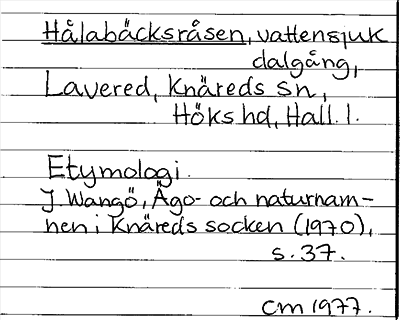 Hålabäcksråsen, vattensjuk
dalgång,
Lavered, Knäreds sn,
Höks hd, Hall. l.
Etymologi.
J. Wangö, Ägo- och naturnam-
nen i Knäreds socken (1970),
s. 37.
CM 1977.